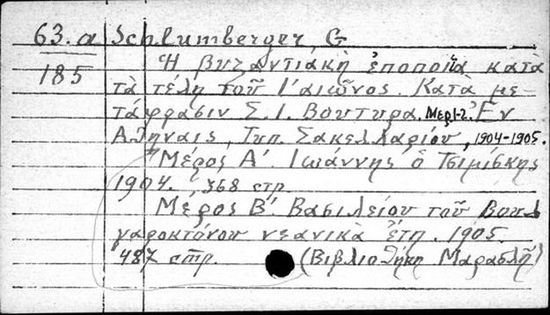 63.a Schlumberger, G
185 Ἡ βυζαντιακὴ ἐποποιΐα κατα
τὰ τέλη τοῦ Ι' αἰῶνος. Κατὰ με-
τάφρασιν Σ. Ι. Βουτυρα. Μερ. 1-2. Ἐν
Ἀθηναις, Τυπ. Σακελλαρίου, 1904-1905.
Μέρος Α' Ιωάννης ὁ Τσιμίσκης
1904. 368 στρ
Μέρος Β'. Βασιλείου τοῦ Βουλ
γαροκτόνου νεανικὰ ἔτη. 1905.
487 στρ. (Βιβλιοθήκη Μαρασλῆ)